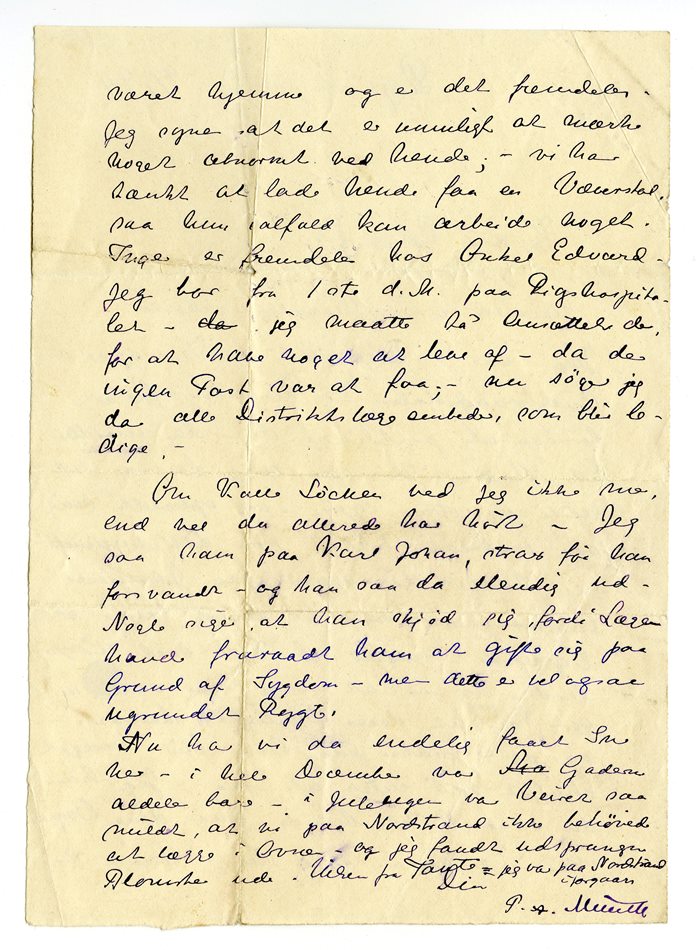 været hjemme og er det fremdeles.
Jeg synes at det er umuligt at mærke
noget abnormt ved hende; – vi har
tænkt at lade hende faa en Vævestol,
saa hun ialfald kan arbeide noget.
Inger er fremdeles hos Onkel Edvard –
Jeg bor fra 1ste d.M. paa Rigshospita-
let – da jeg maatte ta Ansættelse der,
for at have noget at leve af – da der
ingen Post var at faa; – nu søger jeg
da alle Distriktslægeembeder, som blir le-
dige. –
Om Kalle Løchen ved jeg ikke mer,
end vel du allerede har hørt – Jeg
saa ham paa Karl Johan, strax før han
forsvandt – og han saa da elendig ud –
Nogle siger, at han skjød sig, fordi Lægen
havde fraraadt ham at gifte sig paa
Grund af Sygdom – men dette er vel ogsaa
ugrundet Rygte.
Nu har vi da endelig faaet Sne
her – i hele December var Gaden
aldeles bar – i Julehelgen var Veiret saa
mildt, at vi paa Nordstrand ikke behøvede
at lægge i Ovnen – og jeg fandt udsprungne
Blomster ude. Hilsen fra Tante = jeg var paa Nordstrand
Din iforgaars
P. A. Munch